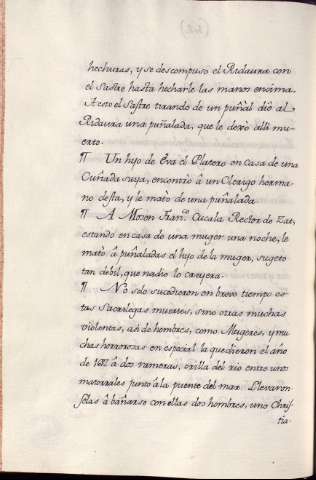 hechuras, y se descompuso el Ridaura con
el Sastre hasta hecharle las manos encima.
A esto el Sastre tirando de un puñal diò al
Ridaura una puñalada, que le dexò alli mu-
erto.
¶ Un hijo de Eva el Platero en casa de una
Cuñada suya, encontrò à un Clerigo herma-
no desta, y le matò de una puñalada.
¶ A Mosen Fran.co Cucala Rector de
estando en casa de una muger una noche, le
matò à puñaladas el hijo de la muger, sugeto
tan debil, que nadie lo creyera.
¶ No solo sucedieron en breve tiempo es-
tas Sacrilegas muertes, sino otras muchas
violentas, asi de hombres, como Mugeres, y mu-
chas horrorosas en especial la que dieron el año
de à dos rameras, orilla del rio entre unos
matorrales junto à la puente del mar. Llevaron-
solas à bañarse con ellas dos hombres, uno Chris-
tia-